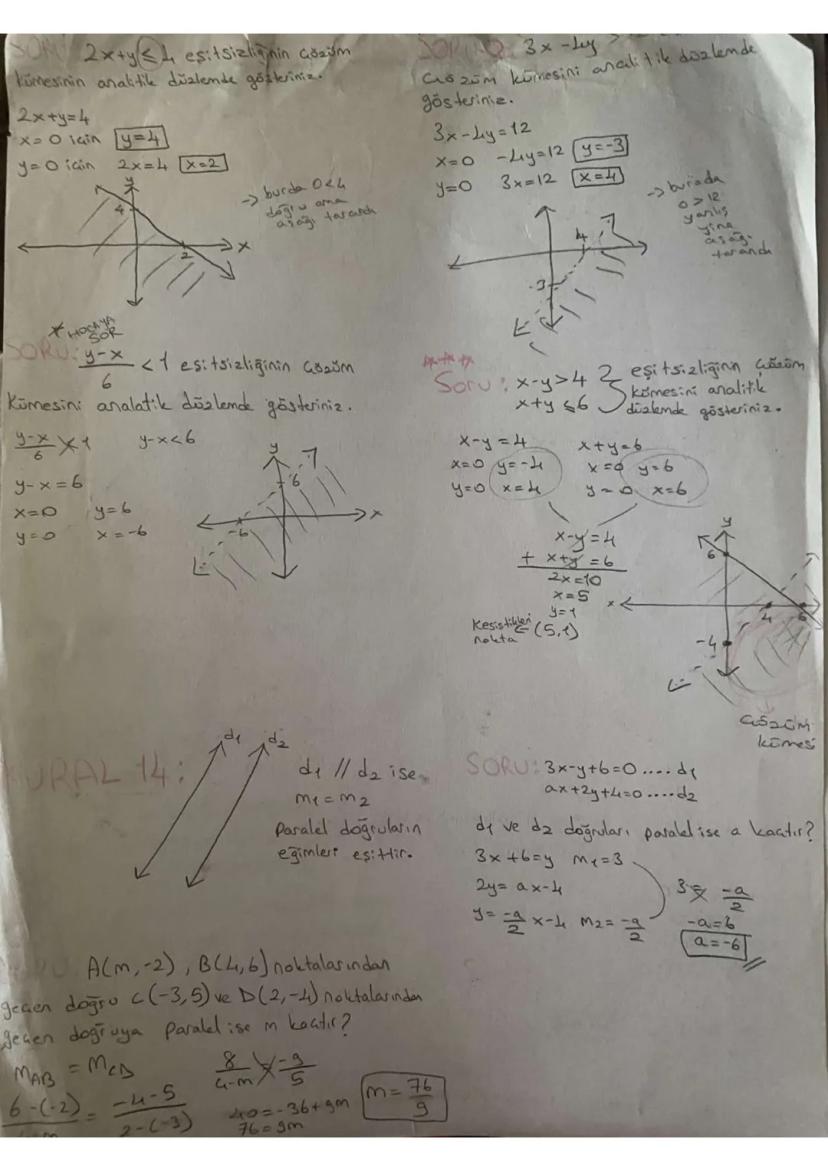 SORU: 2x+y≤4 eşitsizliğinin çözüm
kümesinin analitik düzlemde gösteriniz.
2x+y=4
x=0 için y=4
y=0 için 2x=4 x=2
y
4
2
x
→ burda 0<4
doğru ama
aşağı tarandı
3x-4y>
çözüm kümesini analitik düzlemde
gösteriniz.
3x-4y=12
x=0 -4y=12 y=-3
y=0 3x=12 x=4
4
-3
→ burada
0>12
yanlış
yine
aşağı
tarandı
* HOCAYA
SOR
SORU: y-x/6 <1 eşitsizliğinin çözüm
kümesini analatik düzlemde gösteriniz.
y-x/6 1 y-x<6
y-x=6
x=0 y=6
y=0 x=-6
y
6
-6
x
***
Soru: x-y>4
x+y≤6
eşitsizliğinin çözüm
kümesini analitik
düzlemde gösteriniz.
x-y=4 x+y=6
x=0 y=-4 x=0 y=6
y=0 x=4 y=0 x=6
x-y=4
+ x+y=6
2x=10
x=5
y=1
Kesiştikleri
nokta
(5,1)
y
6
x
4
6
-4
çözüm
kümesi
KURAL 14:
d1 d2
d1 // d2 ise
m1=m2
Paralel doğruların
eğimleri eşittir.
SORU: 3x-y+6=0 ....d1
ax+2y+4=0 ....d2
d1 ve d2 doğruları paralel ise a kaçtır?
3x+6=y m1=3
2y=ax-4
y=-a/2 x-4 m2=-a/2
3= -a/2
-a=6
a=-6
A(m,-2), B(4,6) noktalarından
geçen doğru C(-3,5) ve D(2,-4) noktalarından
geçen doğruya paralel ise m kaçtır?
mAB = mCD
6-(-2) = -4-5/2-(-3)
8/4-m -9/5
40=-36+9m
76=9m
m=76/9